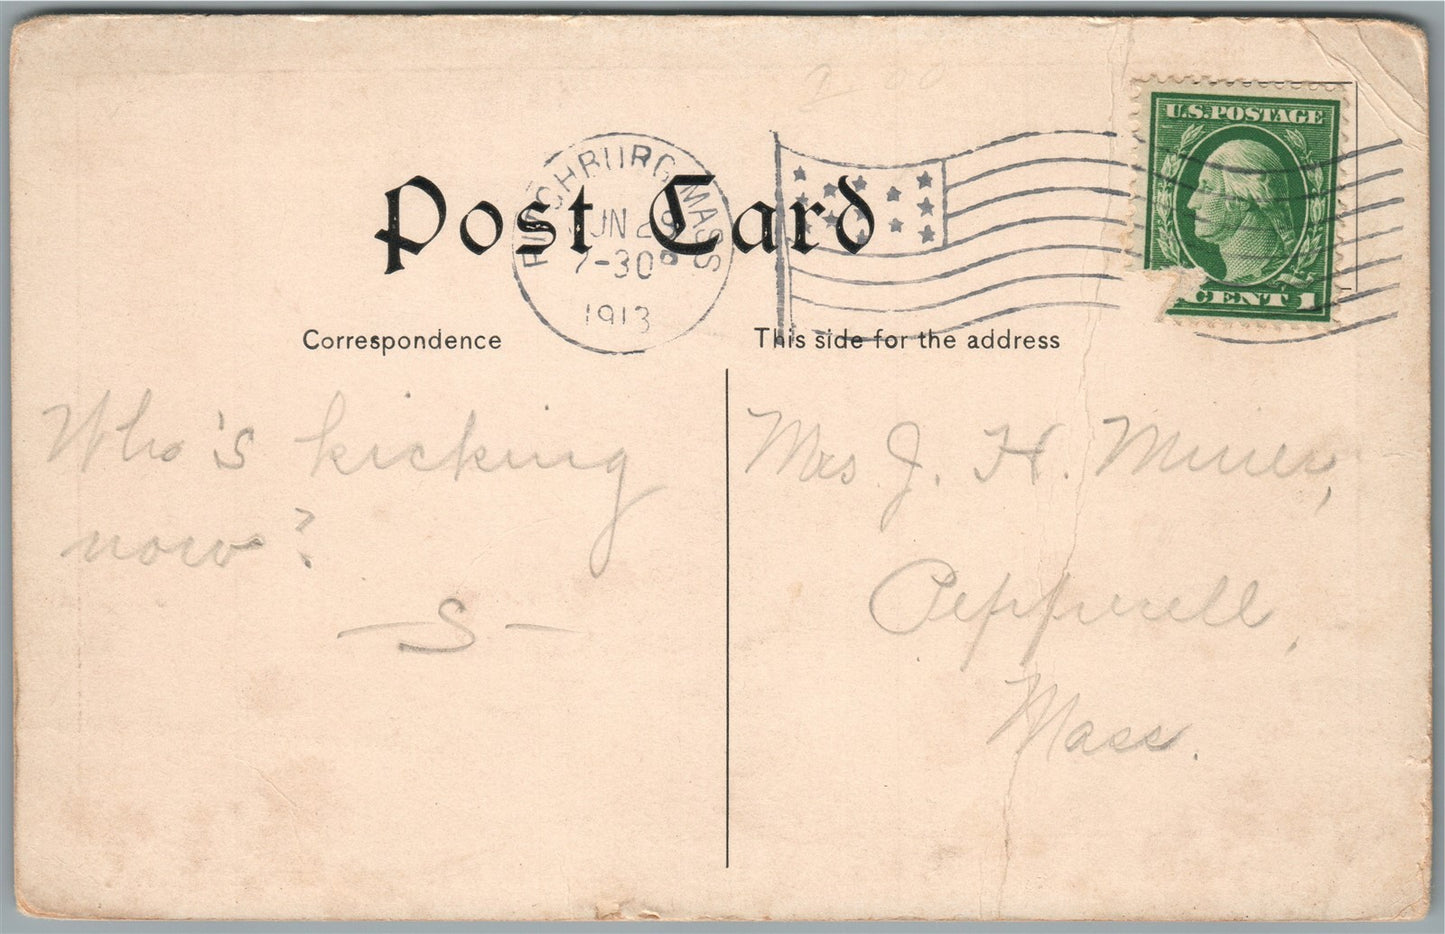 Post Card
FITCHBURG MASS
JUN 2
7-30 P
1913
U.S. POSTAGE
CENT 1
Correspondence
This side for the address
Who's kicking
now?
— S —
Mrs J. H. Miner,
Pepperell,
Mass.